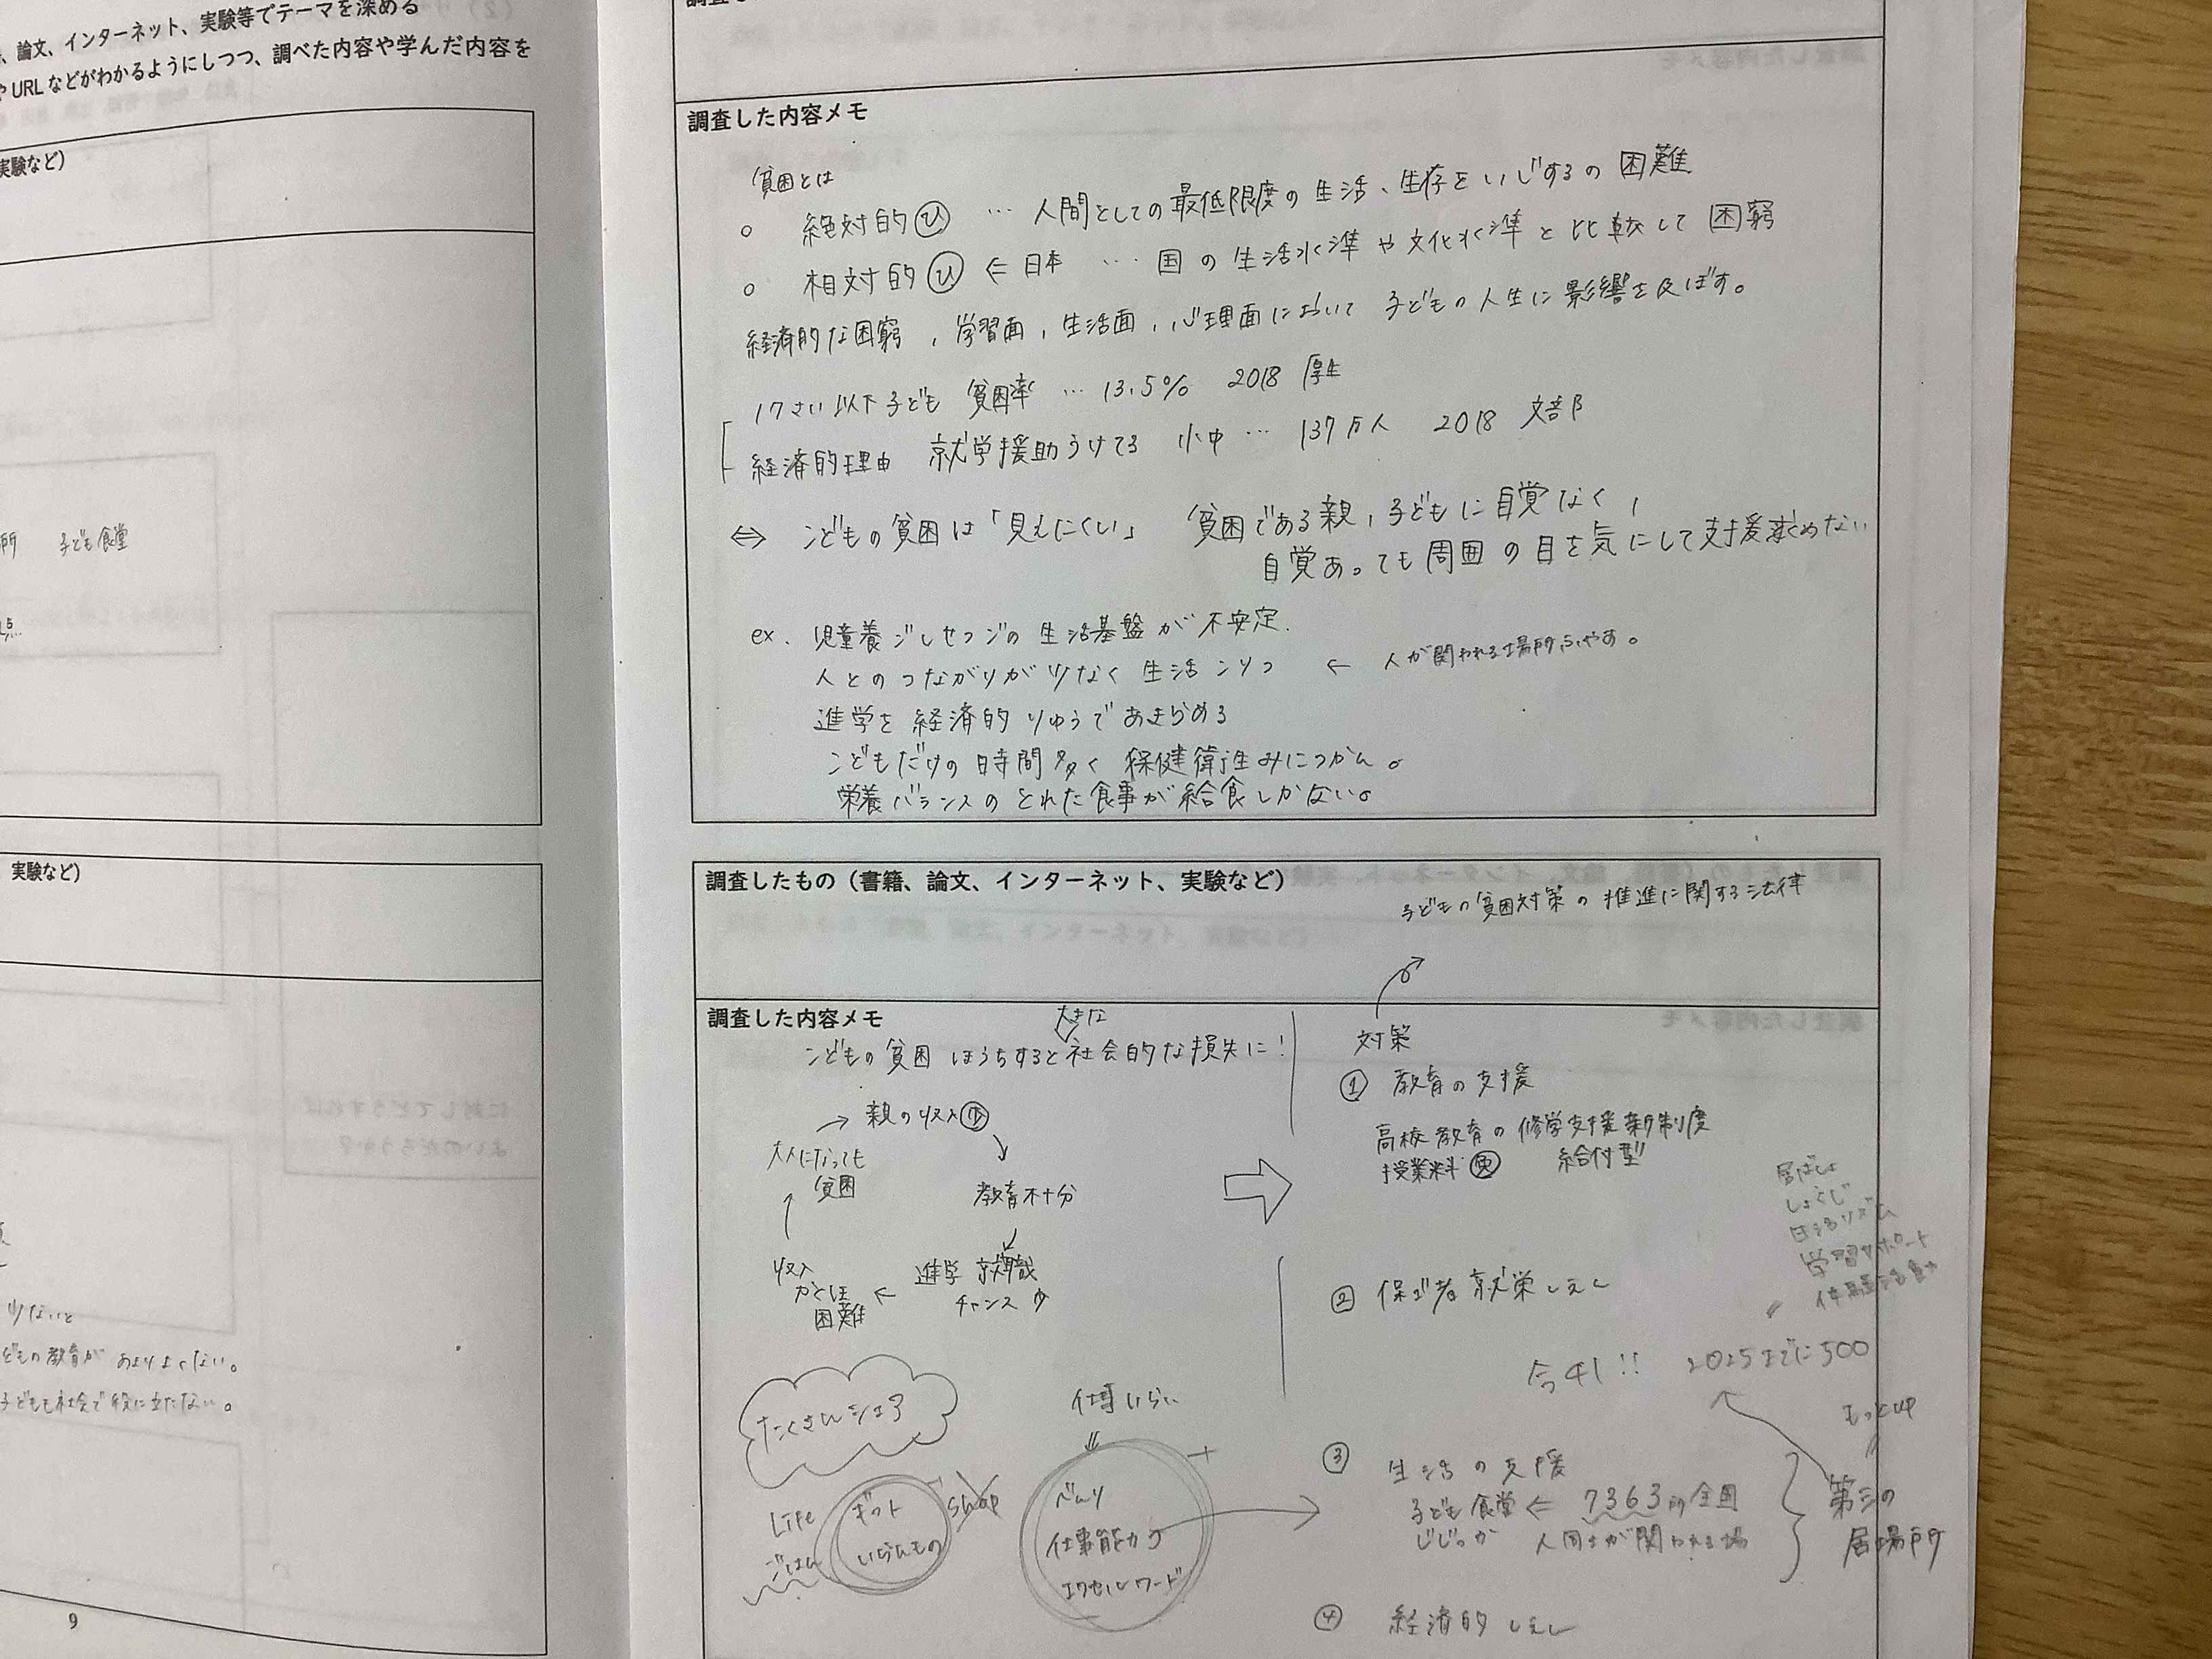 論文、インターネット、実験等でテーマを深める
URLなどがわかるようにしつつ、調べた内容や学んだ内容を
実験など）
子ども食堂
実験など）
少ないと
どもの教育があまりよくない。
子どもも社会で役に立たない。
9
調査した内容メモ
貧困とは
○ 絶対的㋪ … 人間としての最低限度の生活、生存をいじするの困難
○ 相対的㋪ ⇐ 日本 … 国の生活水準や文化水準と比較して困窮
経済的な困窮，学習面，生活面，心理面において子どもの人生に影響を及ぼす。
17さい以下子ども 貧困率 … 13.5% 2018 厚生
経済的理由 就学援助うけてる 小中 … 137万人 2018 文部
⇔ こどもの貧困は「見えにくい」 貧困である親，子どもに自覚なく，
自覚あっても周囲の目を気にして支援求めない
ex. 児童養ごしせつじの生活基盤が不安定.
人とのつながりが少なく生活こりつ ← 人が関われる場所ふやす。
進学を経済的りゆうであきらめる
こどもだけの時間多く 保健衛生みにつかん。
栄養バランスのとれた食事が給食しかない。
調査したもの（書籍、論文、インターネット、実験など）
子どもの貧困対策の推進に関する法律
調査した内容メモ
大きな
こどもの貧困ほうちすると社会的な損失に！
対策
① 教育の支援
高校教育の 修学支援新制度
授業料 給付型
親の収入㊛
大人になっても
貧困
教育不十分
進学 就職
チャンス 少
収入
かくほ
困難
② 保ご者就労しえん
居ばしょ
しょくじ
生活リズム
学習サポート
2025までに500
もっとUP
たくさんシェア
仕事いらい
③ 生活の支援
子ども食堂 ⇐ 7363所全国
人同士が関われる場
第三の
居場所
Life
ごはん
ギフト
いらんもの
Shop
べんり
仕事能力
エクセルワード
④ 経済的しえん